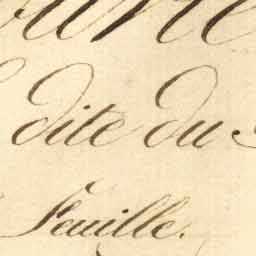 dite du
Feuille.